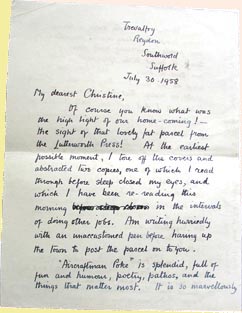 Trewattry
Reydon
Southwold
Suffolk
July 30. 1958
My dearest Christine,
Of course you know what was
the high light of our home-coming! –
the sight of that lovely fat parcel from
the Lutterworth Press! At the earliest
possible moment, I tore off the covers and
abstracted two copies, one of which I read
through before sleep closed my eyes, and
which I have been re-reading this
morning in the intervals
of doing other jobs. Am writing hurriedly
with an unaccustomed pen before haring up
the town to post the parcel on to you.
"Aircraftman Poke" is splendid, full of
fun and humour, poetry, pathos, and the
things that matter most. It is so marvellously